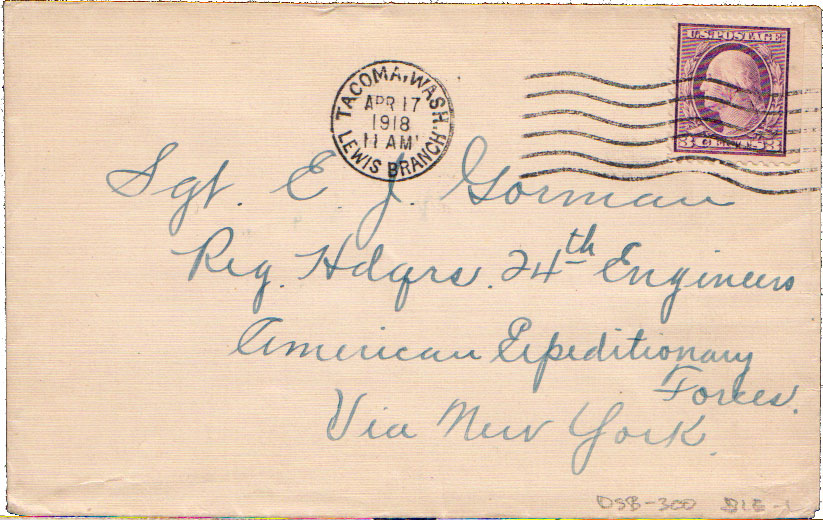 U.S. POSTAGE
TACOMA, WASH.
APR 17
1918
11 AM
LEWIS BRANCH
3 CENTS 3
Sgt. E. J. Gorman
Reg. Hdqrs. 24th Engineers
American Expeditionary
Forces.
Via New York.
DSB-300